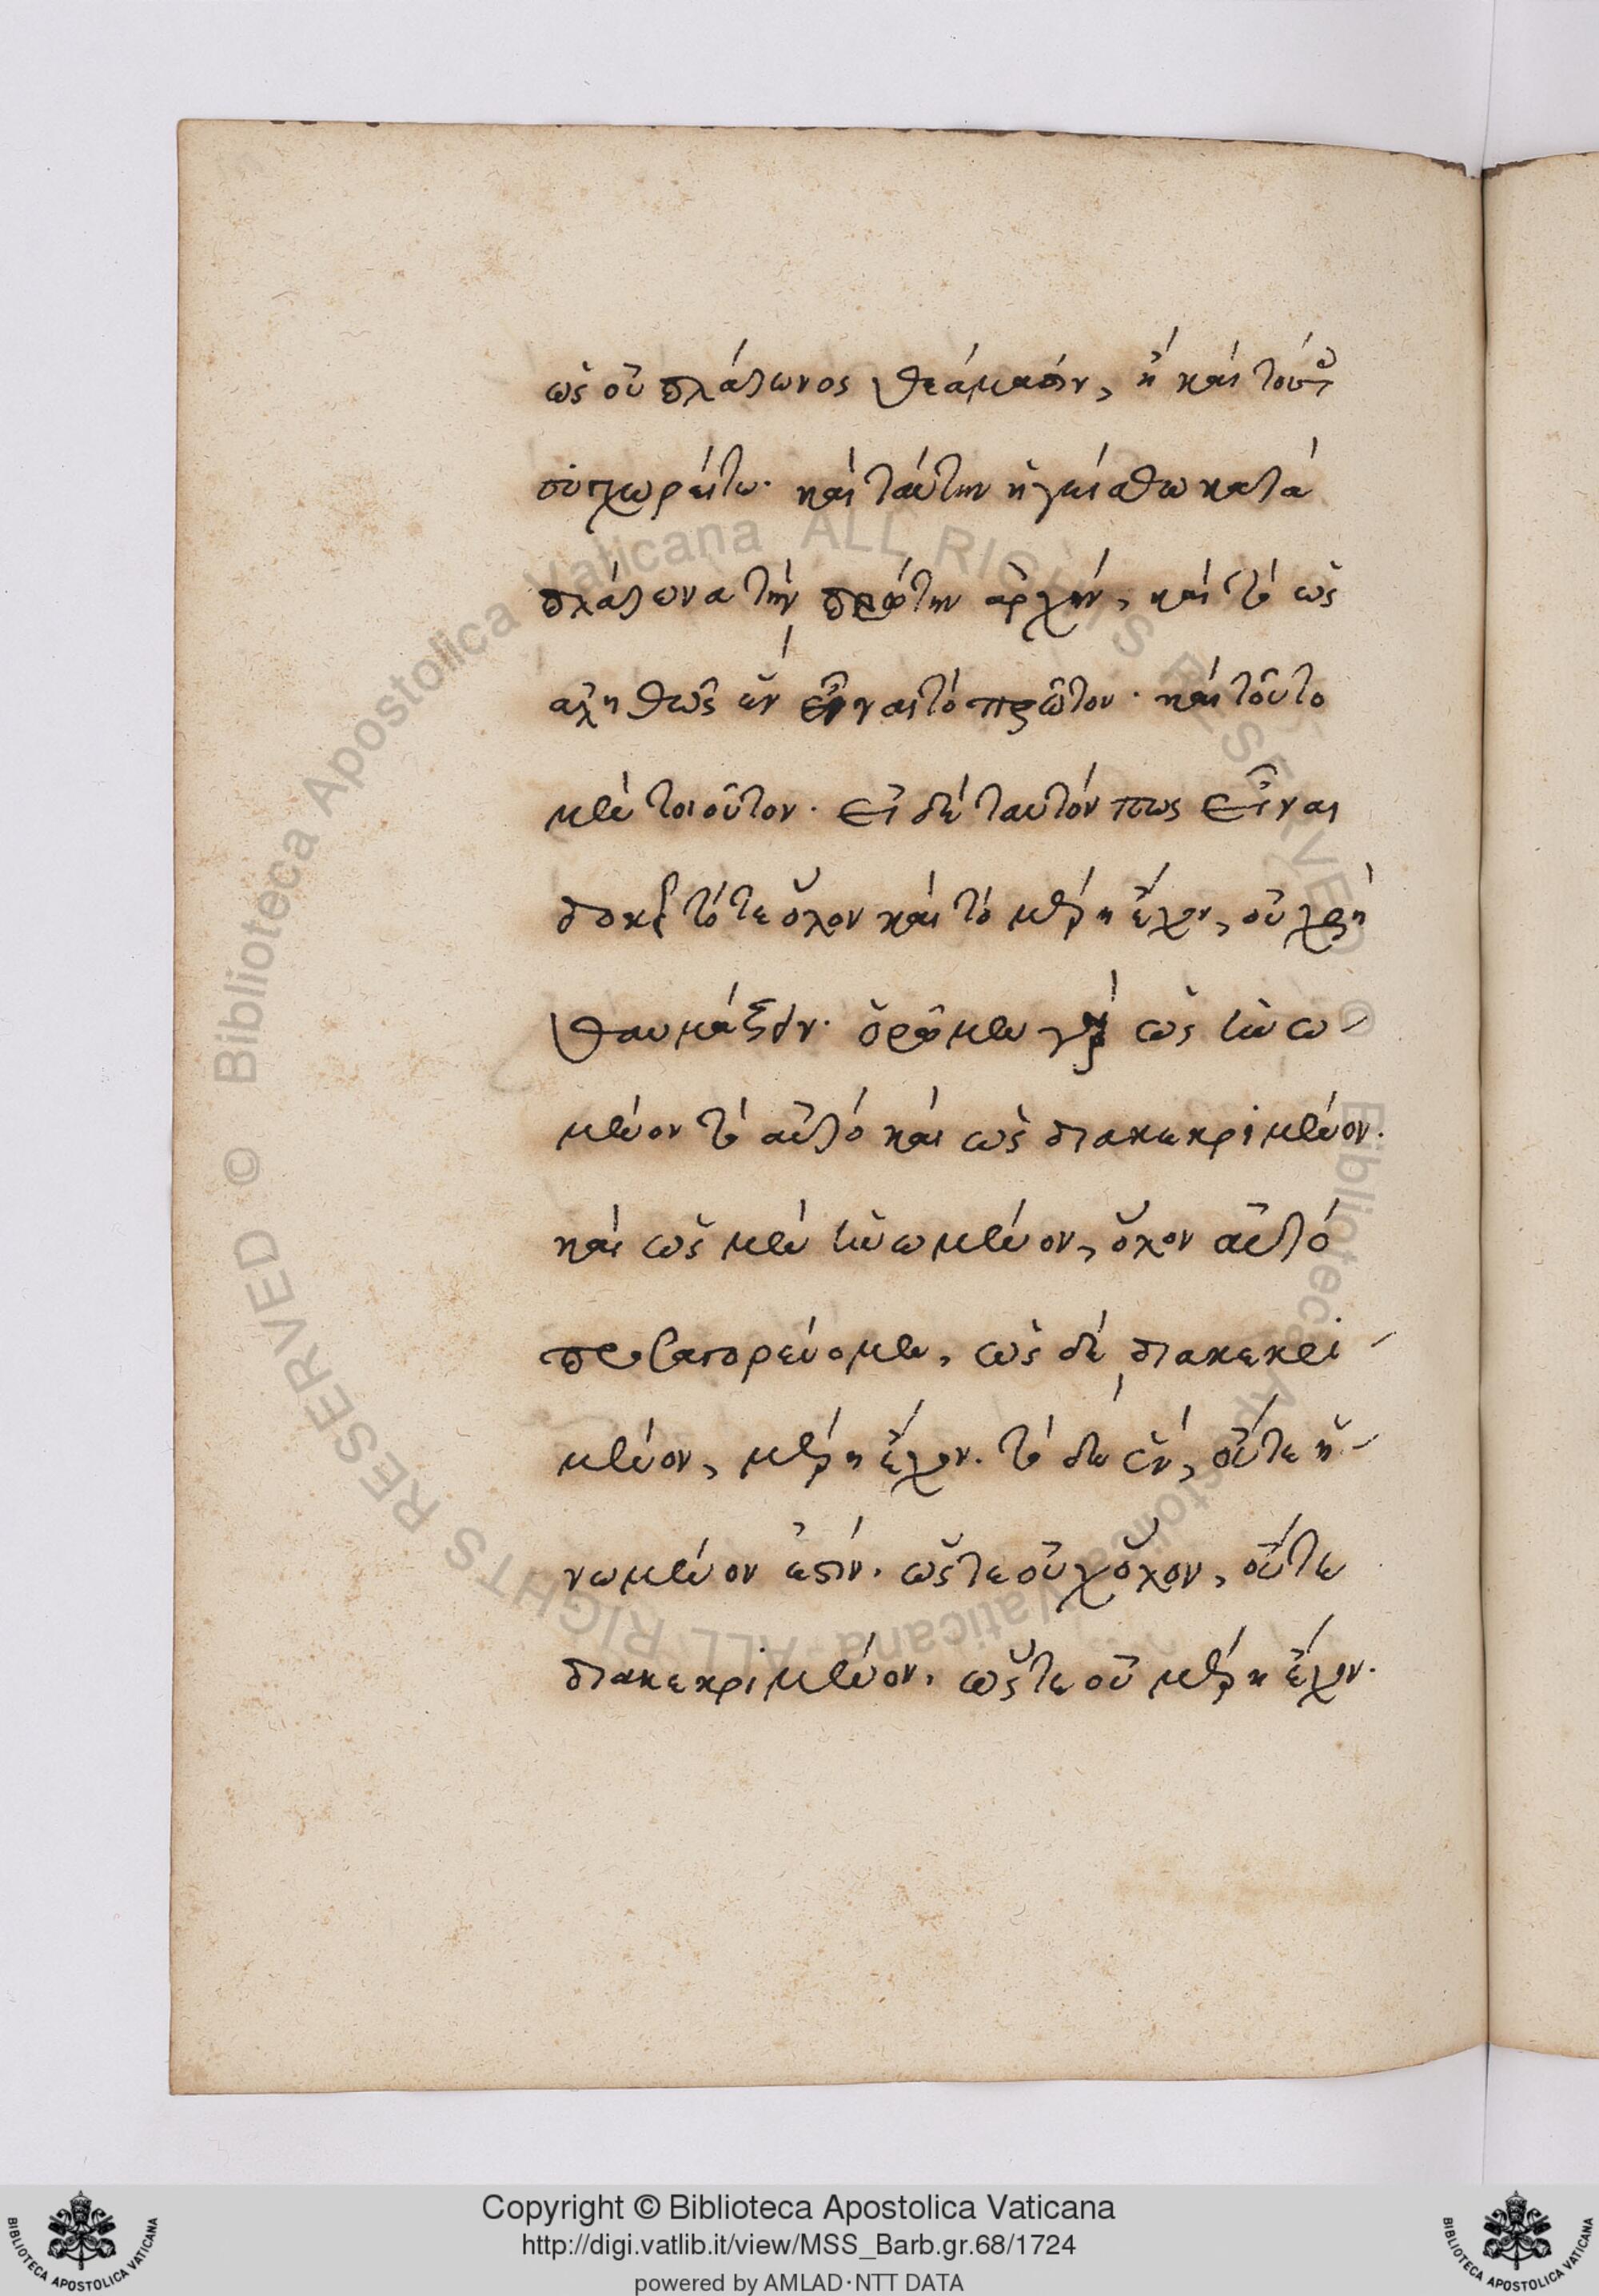 ὡς οὐ πλάτωνος θεάμασιν, ἢ καὶ τοῦτο
συγχωρείτω· καὶ ταύτην ἡγείσθω κατὰ
πλάτωνα τὴν πρώτην ἀρχήν, καὶ τὸ ὡς
ἀληθῶς ἓν εἶναι τὸ πρῶτον· καὶ τοῦτο
μὲν τοιοῦτον· εἰ δὲ ταυτόν πως εἶναι
δοκεῖ τό τε ὅλον καὶ τὸ μέρη ἔχον, οὐ χρὴ
θαυμάζειν· ὁρῶμεν γὰρ ὡς ἡνω-
μένον τὸ αὐτὸ καὶ ὡς διακεκριμένον.
καὶ ὡς μὲν ἡνωμένον, ὅλον αὐτὸ
προσαγορεύομεν, ὡς δὲ διακεκρι-
μένον, μέρη ἔχον. τὸ δὲ ἓν, οὔτε ἡ-
νωμένον ἐστίν. ὥστε οὐχ ὅλον, οὔτε
διακεκριμένον, ὥστε οὐ μέρη ἔχον.
Copyright © Biblioteca Apostolica Vaticana
http://digi.vatlib.it/view/MSS_Barb.gr.68/1724
powered by AMLAD·NTT DATA
BIBLIOTECA APOSTOLICA VATICANA
BIBLIOTECA APOSTOLICA VATICANA
© Biblioteca Apostolica Vaticana ALL RIGHTS RESERVED
© Biblioteca Apostolica Vaticana ALL RIGHTS RESERVED